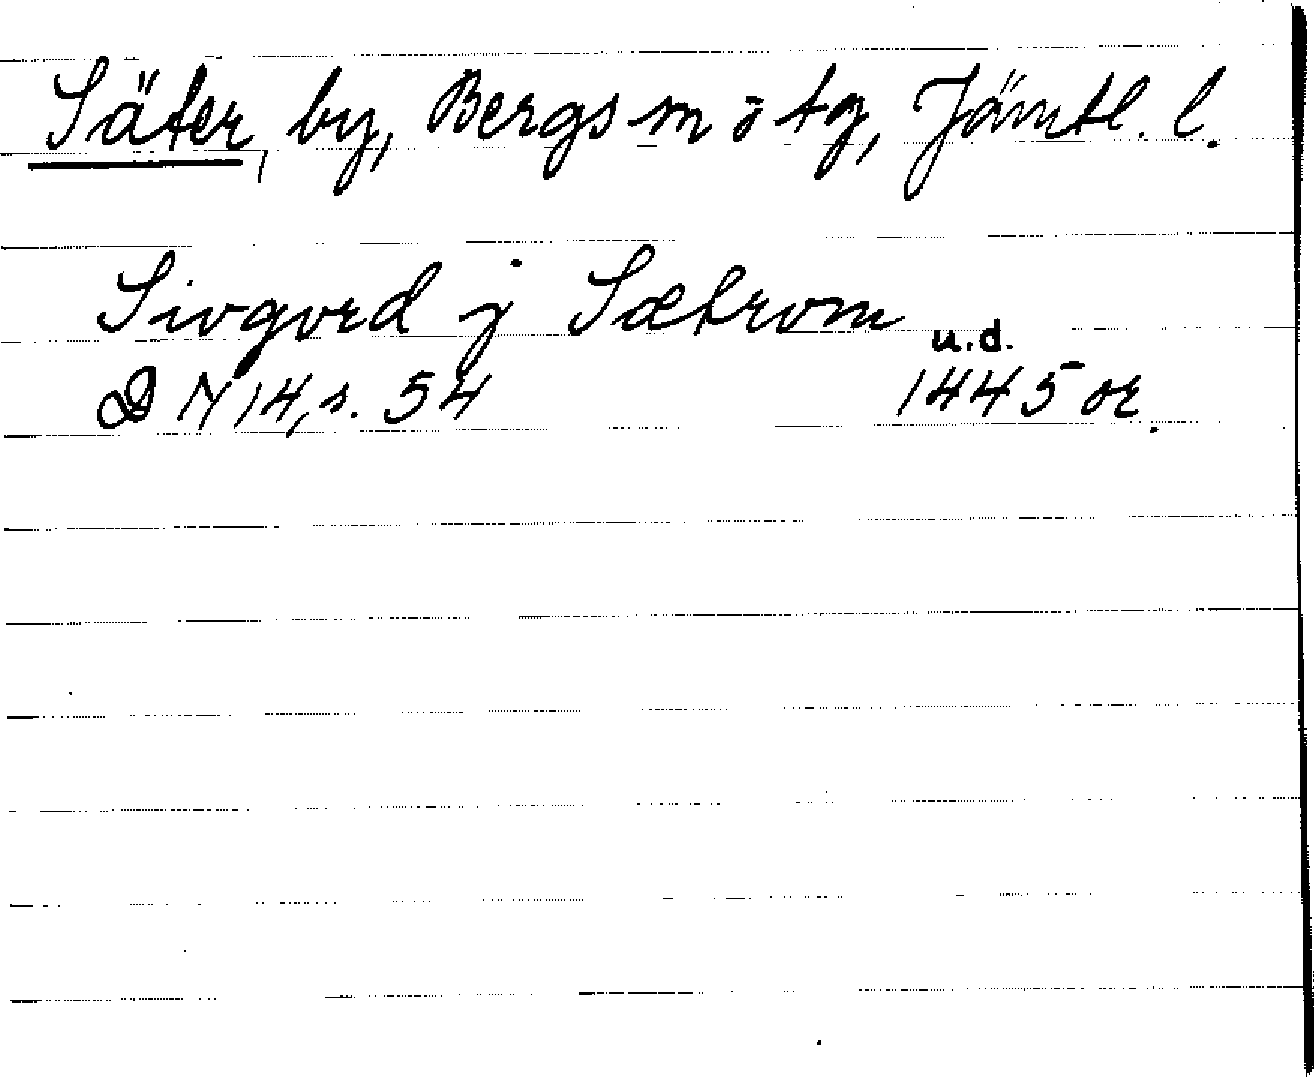 Säter, by, Bergs sn o tg, Jämtl. l.
Sivgvrd j Sætrom
u.d.
DN 14, s. 54 1445 or.